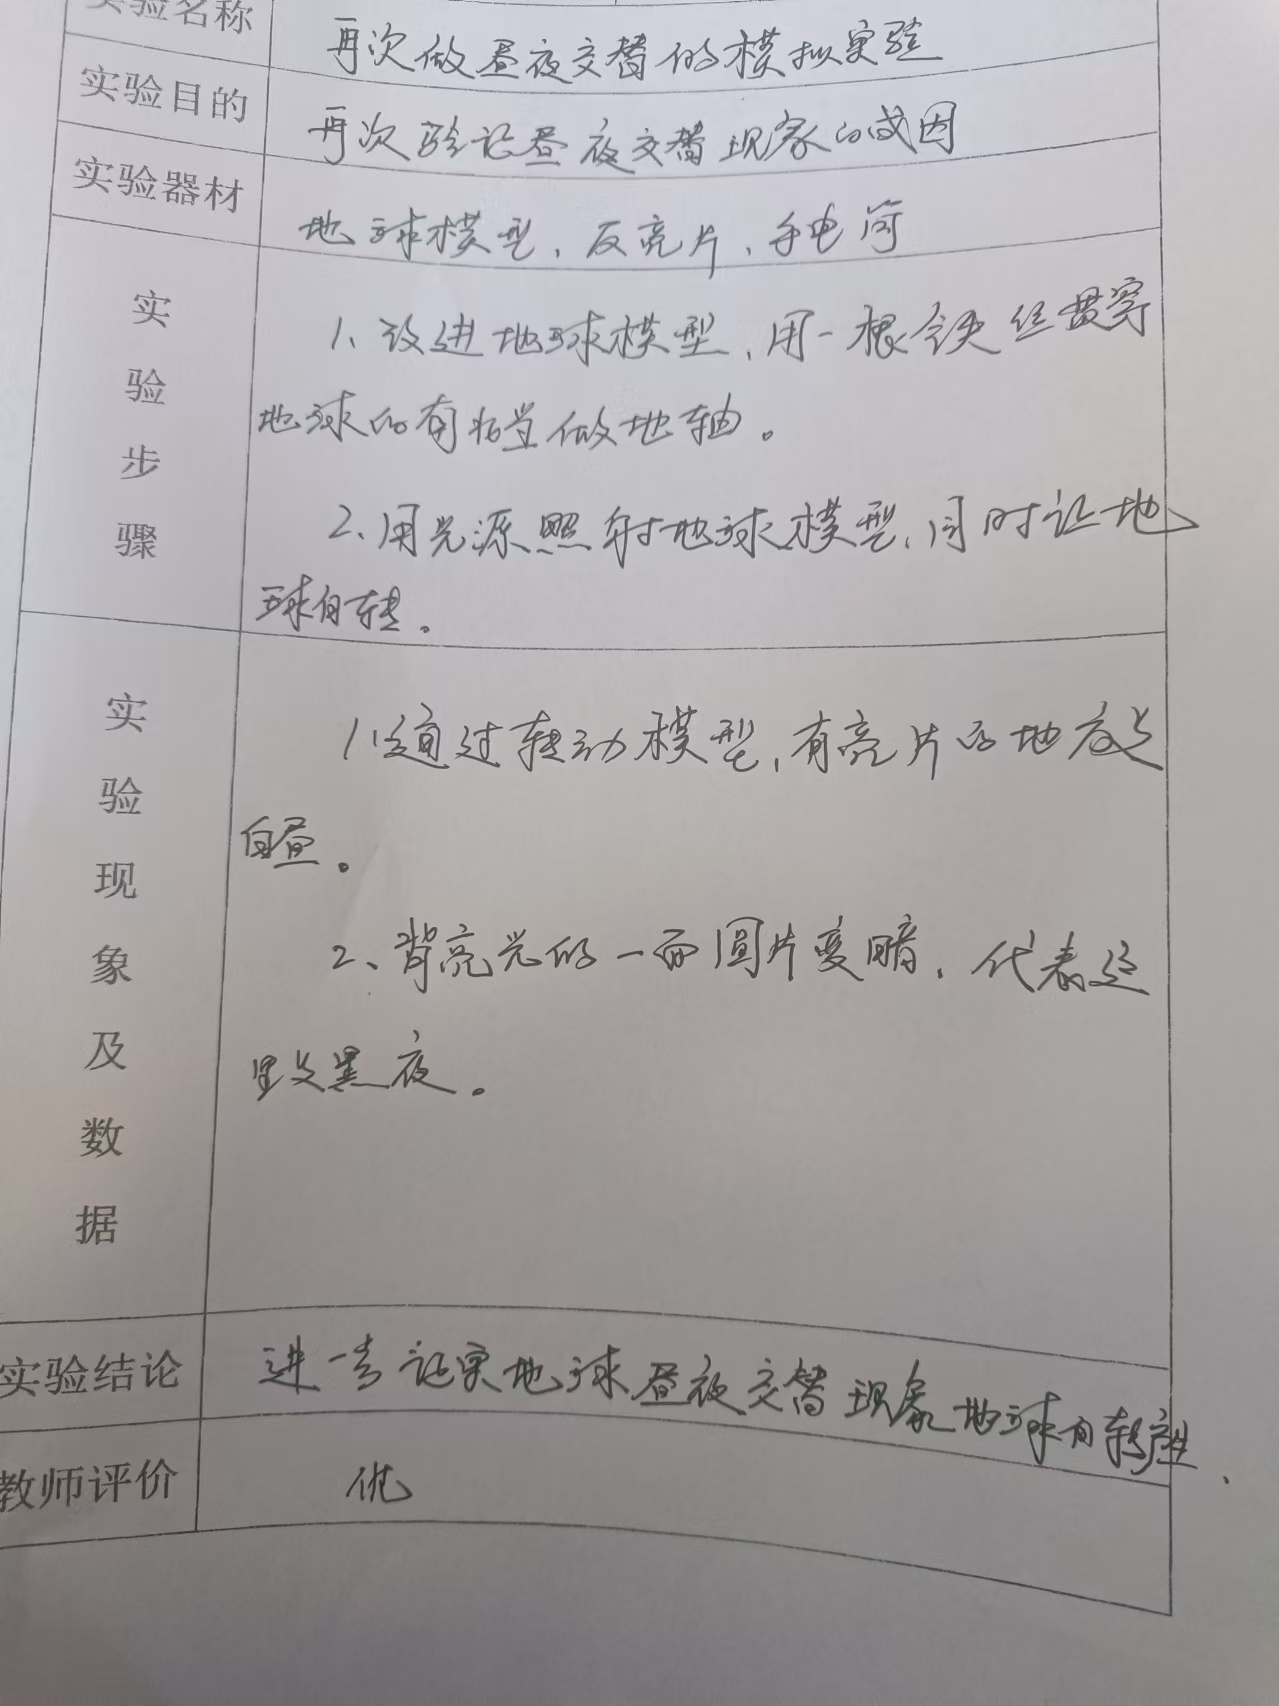 实验名称 再次做昼夜交替的模拟实验
实验目的 再次验证昼夜交替现象的成因
实验器材 地球模型、反亮片、手电筒
实验步骤
1、改进地球模型,用一根铁丝贯穿
地球的有位置做地轴。
2、用光源照射地球模型,同时让地
球自转。
实验现象及数据
1、通过转动模型,有亮片的地方是
白昼。
2、背亮光的一面圆片变暗,代表这
里是黑夜。
实验结论 进一步证实地球昼夜交替现象地球自转产生.
教师评价 优